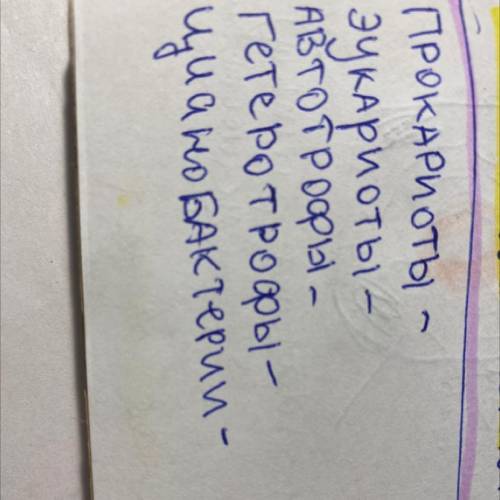 ПРОКАРИОТЫ -
ЭУКАРИОТЫ -
АВТОТРОФЫ -
ГЕТЕРОТРОФЫ -
ЦИАНОБАКТЕРИИ -